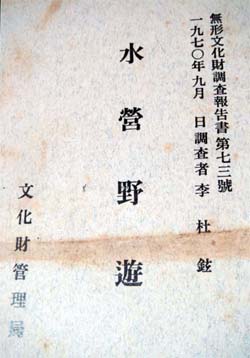 無形文化財調査報告書 第七三號
一九七〇年九月　日調査者 李 杜鉉
水營野遊
文化財管理局